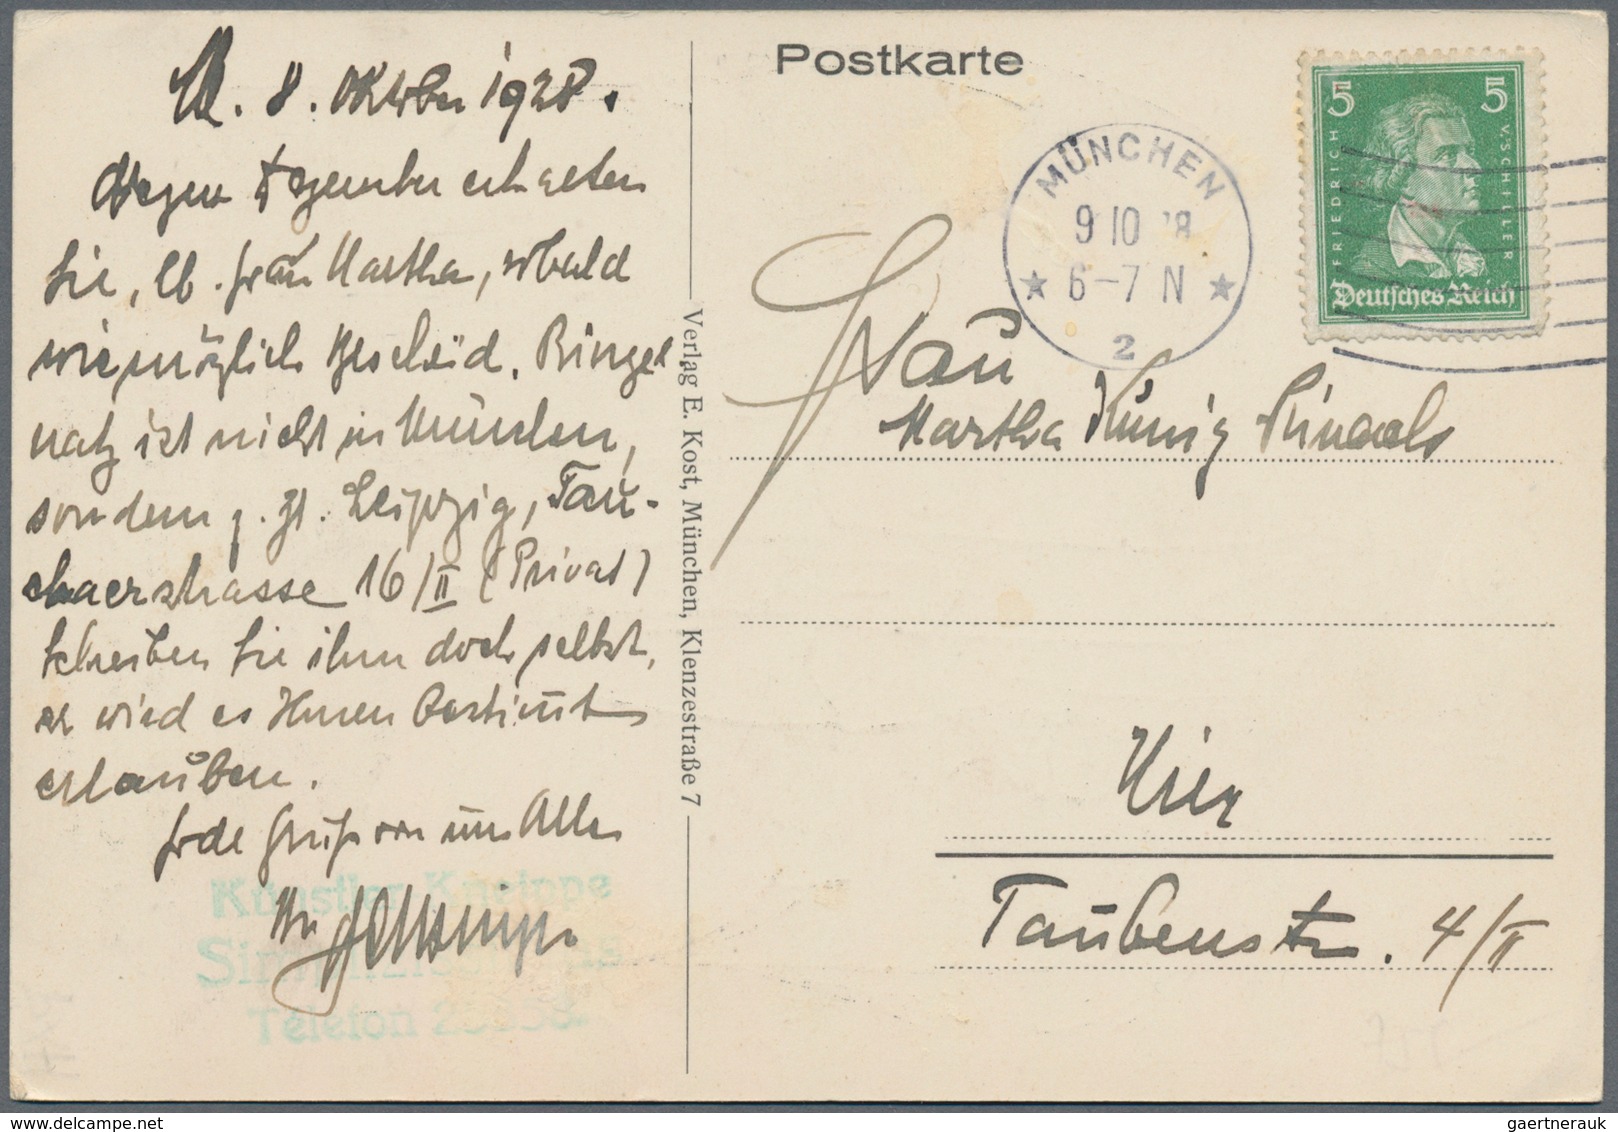 M. 8. Oktober 1928.
Wegen Dezember erhalten
Sie, lb. Frau Martha, sobald
wie möglich Bescheid. Ringel
natz ist nicht in München,
sondern z. Zt. Leipzig, Tau-
chaerstrasse 16/II (Privat)
Schreiben Sie ihm doch selbst,
er wird es Ihnen bestimmt
erlauben.
Grüße von uns Allen
Ihr
Künstler Kneippe
Telefon
Verlag E. Kost, München, Klenzestraße 7
Postkarte
MÜNCHEN
9 10 28
6-7 N
2
5 5
FRIEDRICH V. SCHILLER
Deutsches Reich
Frau
Martha König
Hier
Taubenstr. 4/II
gaertnerauk @ delcampe.net